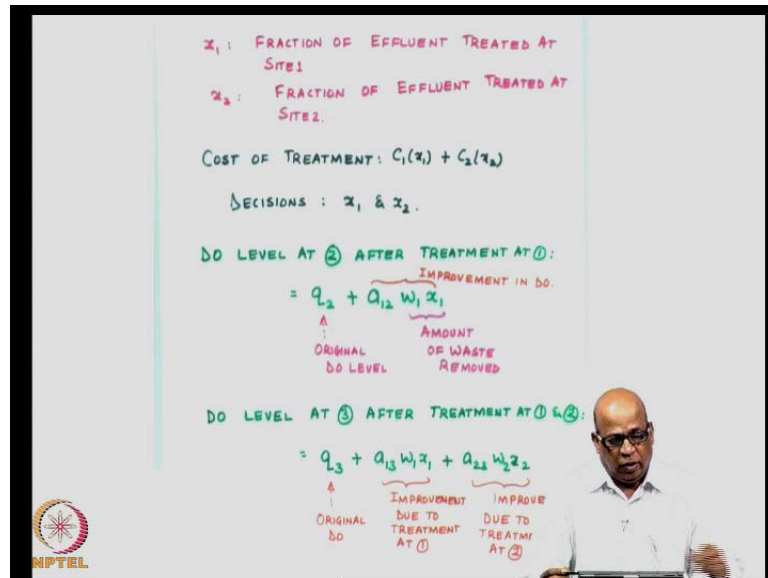 x₁: FRACTION OF EFFLUENT TREATED AT
SITE1
x₂: FRACTION OF EFFLUENT TREATED AT
SITE2.
COST OF TREATMENT: C₁(x₁) + C₂(x₂)
DECISIONS : x₁ & x₂.
DO LEVEL AT ② AFTER TREATMENT AT ①:
IMPROVEMENT IN DO.
= q₂ + a₁₂ W₁ x₁
ORIGINAL DO LEVEL
AMOUNT OF WASTE REMOVED
DO LEVEL AT ③ AFTER TREATMENT AT ① & ②:
= q₃ + a₁₃ W₁x₁ + a₂₃ W₂x₂
ORIGINAL DO
IMPROVEMENT DUE TO TREATMENT AT ①
IMPROVE DUE TO TREATME AT ②
NPTEL